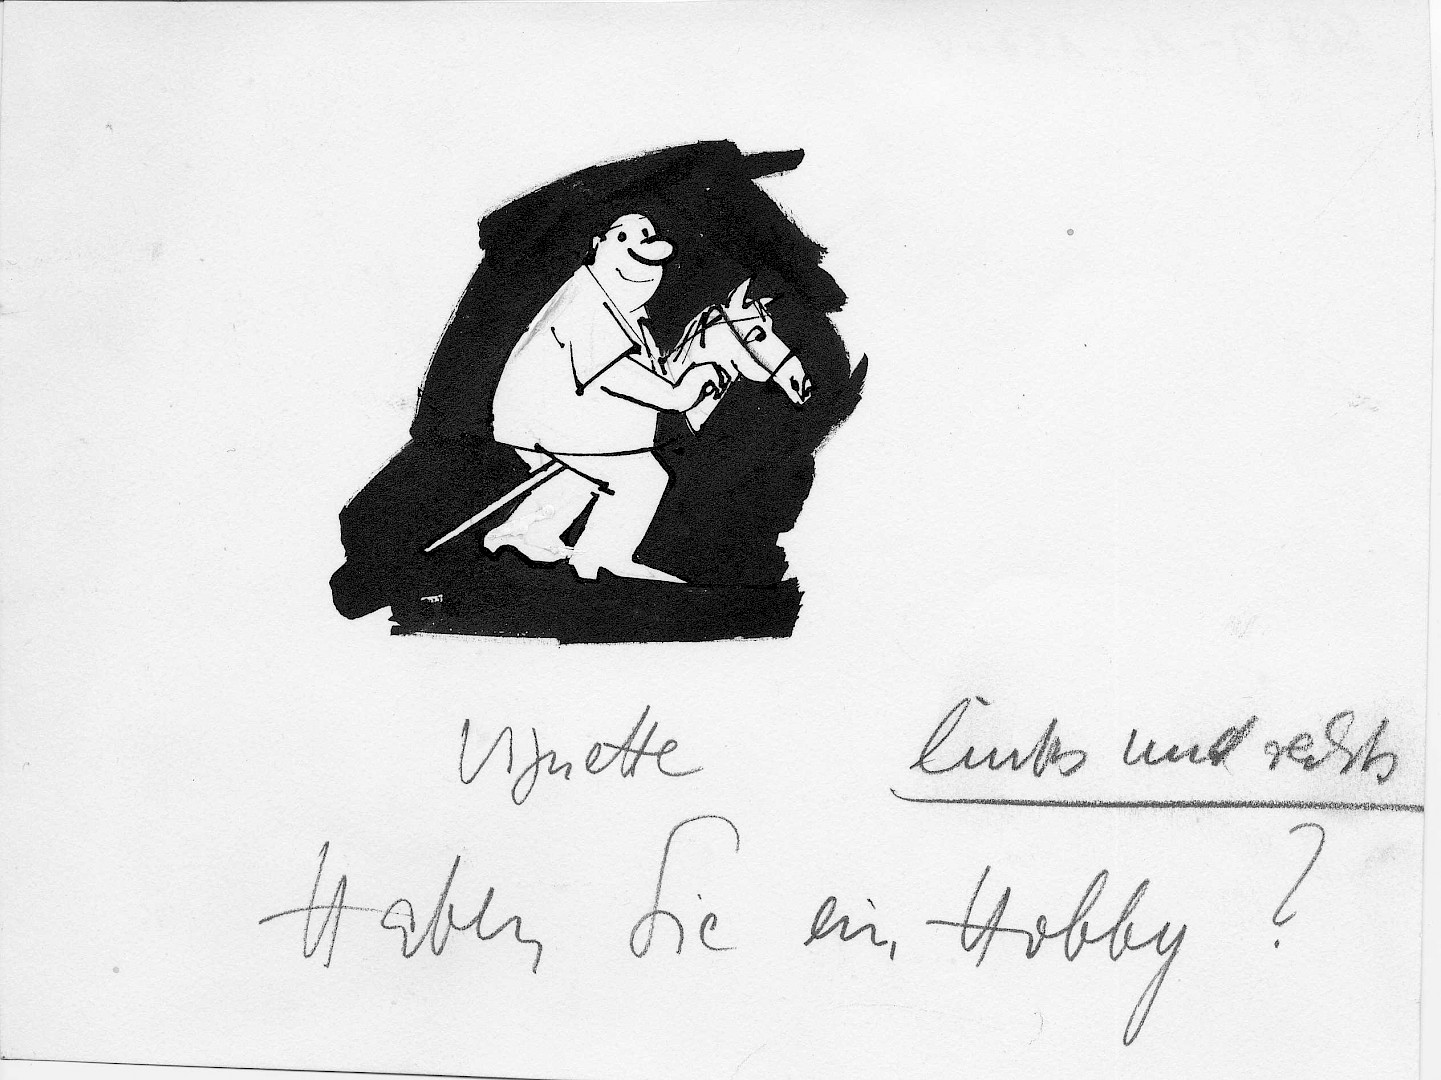 Vignette
links und rechts
Haben Sie ein Hobby?